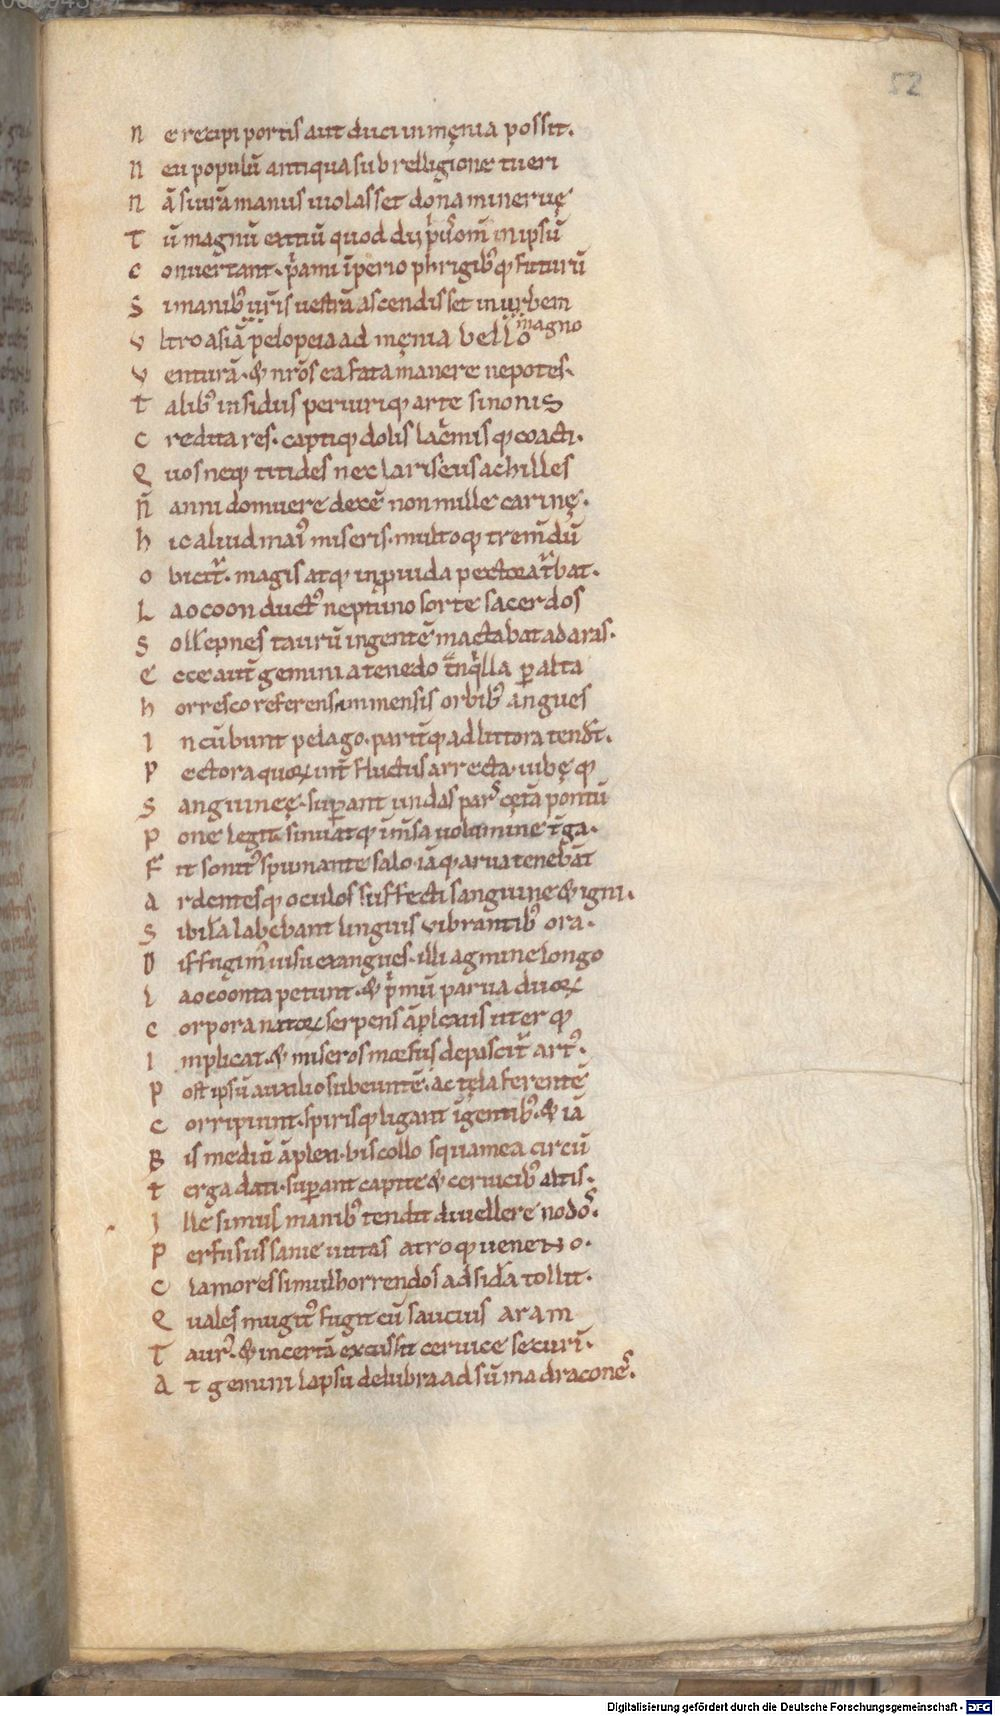 52
N e recipi portis aut duci in męnia possit.
N eu populū antiqua sub relligione tueri
N ā si ūra manus uiolasset dona mineruę
T ū magnū exitiū quod dij pͥ̄ om̄ in ipsū
C onuertant. pͥami īperio phrigibꝰ qꝫ futurū
S i manibꝰ ur̄is uestrā ascendisset in urbem
V ltro asiā pelopeia ad męnia bello magno
V enturā. & nr̄os ea fata manere nepotes.
T alibꝰ insidiis periuriqꝫ arte sinonis
C redita res. captiqꝫ dolis lac̄mis qꝫ coacti.
Q uos neqꝫ titides nec lariseus achilles
N̄ anni domuere decē non mille carinę.
h ic aliud maiꝰ miseris. multoqꝫ trem̄dū
O bicit᷑. magis atqꝫ inꝓuida pectora t᷑bat.
L aocoon ductꝰ neptuno sorte sacerdos
S oll̄epnes taurū ingentē mactabat ad aras.
E cce aut̄ gemini a tenedo t̄nqͥlla ꝑ alta
h orresco referens immensis orbibꝰ angues
I ncūbunt pelago. parit̄qꝫ ad littora tendt̄.
P ectora quoꝝ int̄ fluctus arrecta. iubęqꝫ
S anguineę. suꝑant undas pars cętā pontū
P one legit. sinuatqꝫ īm̄sa uolumine t̄ga.
F it sonitꝰ spumante salo. iāqꝫ arua tenebāt
A rdentesqꝫ oculos suffecti sanguine & igni.
S ibila labebant linguis vibrantibꝰ ora.
D iffugimꝰ uisu exangues. illi agmine longo
L aocoonta petunt. & pͥmū parua duoꝝ
C orpora natoꝝ serpens āplexus uterqꝫ
I mplicat. & miseros morsus depascit᷑ artꝰ.
P ost ipsū auxilio subeuntē. ac tela ferentē
C orripiunt. spirisqꝫ ligant īgentibꝰ. & iā
B is mediū āplexi. bis collo squamea circū
T erga dati. suꝑant capite & ceruicibꝰ altis.
I lle simul manibꝰ tendit diuellere nodos.
P erfusus sanie uittas atroqꝫ ueneno.
C lamores simul horrendos ad sid̄a tollit.
Q uales mugitꝰ fugit cū saucius aram
T aurꝰ. & incertā excussit ceruice securī.
A t gemini lapsu delubra ad sūma dracones.
Digitalisierung gefördert durch die Deutsche Forschungsgemeinschaft - DFG